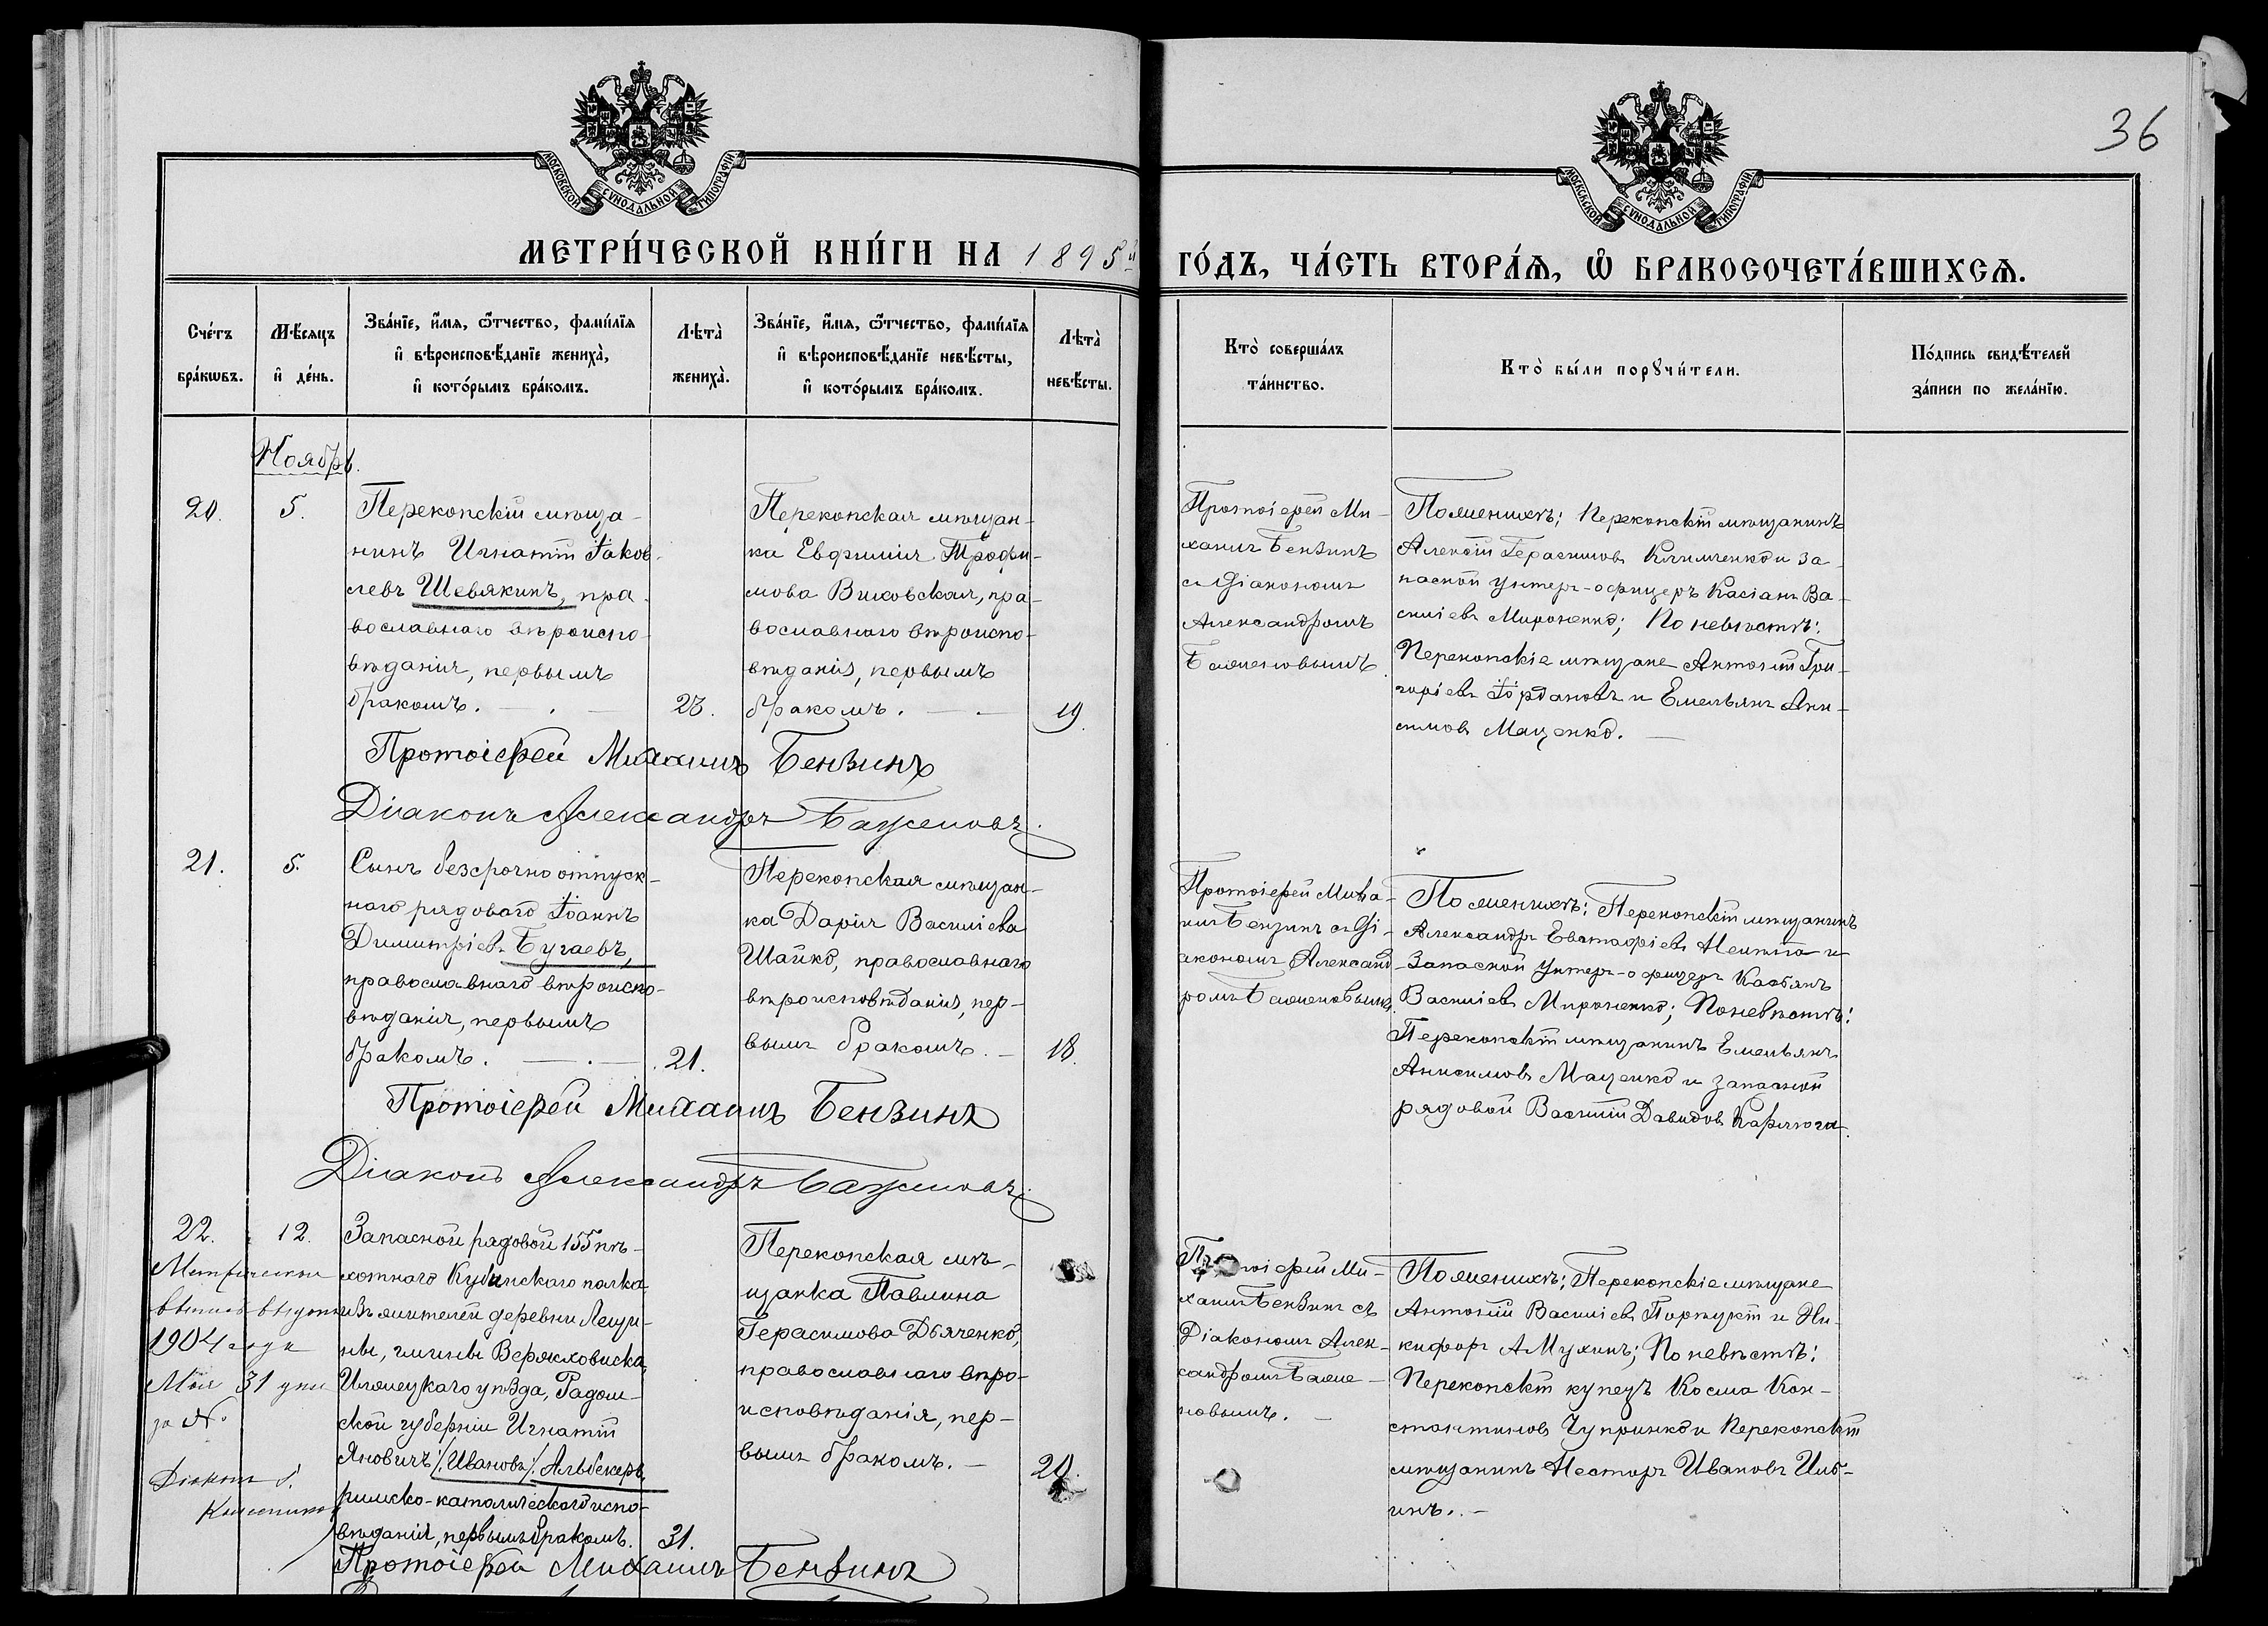 36
МОСКОВСКОЙ СѴНОДАЛЬНОЙ ТИПОГРАФІИ
МОСКОВСКОЙ СѴНОДАЛЬНОЙ ТИПОГРАФІИ
МЕТРИ́ЧЕСКОЙ КНИ́ГИ НА 1895й
ГО́ДЪ, ЧА́СТЬ ВТОРА́Ѧ, Ѽ БРАКОСОЧЕТА́ВШИХСѦ.
Сче́тъ
бра́кѡвъ.
Мѣ́сяцъ
и҆ де́нь.
Зва́нїе, и҆́мѧ, ѻ҆́тчество, фамѝлїѧ
и҆ вѣроисповѣ́данїе жениха̀,
и҆ кото́рымъ бра́комъ.
Лѣта̀
жениха̀.
Зва́нїе, и҆́мѧ, ѻ҆́тчество, фамѝлїѧ
и҆ вѣроисповѣ́данїе невѣ́сты,
и҆ кото́рымъ бра́комъ.
Лѣта̀
невѣ́сты.
Кто̀ соверша́лъ
та́инство.
Кто̀ бы́ли порꙋчи́тели.
По́дпись свидѣ́телей
за́писи по жела́нїю.
Ноябрь.
20.
5.
Перекопскій мѣща-
нинъ Игнатій Іаков-
левъ Шевякинъ, пра-
вославнаго вѣроиспо-
вѣданія, первымъ
бракомъ.
23.
Перекопская мѣщан-
ка Евфимія Трофи-
мова Виховская, пра-
вославнаго вѣроиспо-
вѣданія, первымъ
бракомъ.
19.
Протоіерей Ми-
хаилъ Бензинъ
съ Діакономъ
Александромъ
Баженовымъ
По женихѣ: Перекопскій мѣщанинъ
Алексій Герасимовъ Клименко и за-
пасной унтеръ-офицеръ Касіанъ Ва-
силіевъ Мироненко; По невѣстѣ:
Перекопскіе мѣщане Антоній Гри-
горіевъ Іордановъ и Емельянъ Ани-
симовъ Маценко.
Протоіерей Михаилъ Бензинъ
Діаконъ Александръ Баженовъ.
21.
5.
Сынъ безсрочно отпуск-
наго рядового Іоаннъ
Димитріевъ Бугаевъ,
православнаго вѣроиспо-
вѣданія, первымъ
бракомъ.
21.
Перекопская мѣщан-
ка Дарія Василіева
Шайко, православнаго
вѣроисповѣданія, пер-
вымъ бракомъ.
18.
Протоіерей Миха-
илъ Бензинъ съ Ді-
акономъ Александ-
ромъ Баженовымъ.
По женихѣ: Перекопскій мѣщанинъ
Александръ Евстафіевъ и
Запасной унтеръ-офицеръ Касьянъ
Василіевъ Мироненко; По невѣстѣ:
Перекопскій мѣщанинъ Емельянъ
Анисимовъ Маценко и запасной
рядовой Василій Давидовъ Карлюга.
Протоіерей Михаилъ Бензинъ
Діаконъ Александръ Баженовъ.
22.
12.
Метрическая
выпись выдана
1904 года
Мая 31 дня
за №
Діаконъ
Запасной рядовой 155 пѣ-
хотнаго Кубинскаго полка
изъ жителей деревни Лещи-
ны, гмины Вержховиска,
Илжецкаго уѣзда, Радом-
ской губерніи Игнатій
Яновичъ /Ивановъ/ Альбекеръ,
римско-католическаго испо-
вѣданія, первымъ бракомъ.
31.
Перекопская мѣ-
щанка Павлина
Герасимова Дьяченко,
православнаго вѣро-
исповѣданія, пер-
вымъ бракомъ.
20.
Протоіерей Ми-
хаилъ Бензинъ съ
Діакономъ Алек-
сандромъ Баже-
новымъ.
По женихѣ: Перекопскіе мѣщане
Антоній Василіевъ и Ни-
кифоръ А Мухинъ; По невѣстѣ:
Перекопскій купецъ Косма Кон-
стантиновъ Чупринко и Перекопскій
мѣщанинъ Несторъ Ивановъ Иль-
инъ.
Протоіерей Михаилъ Бензинъ